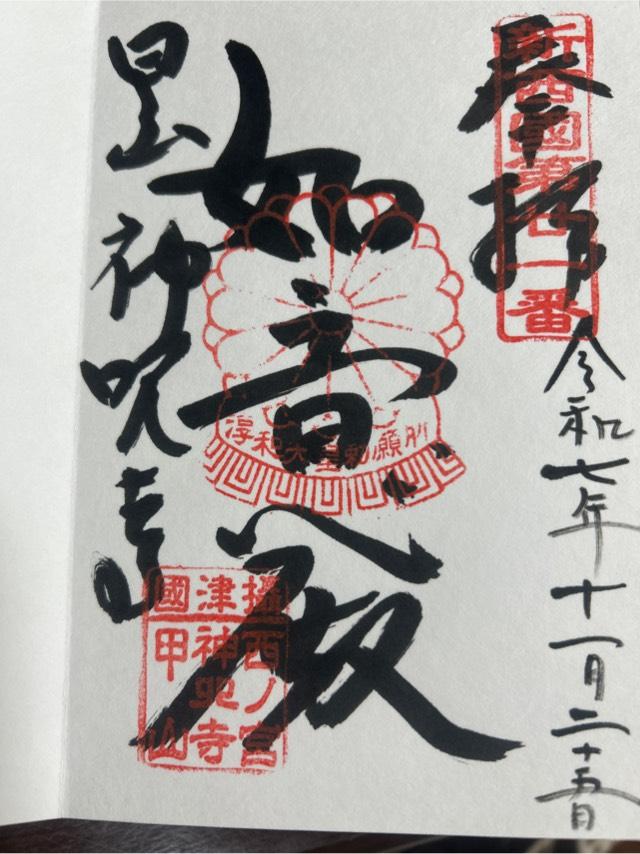 奉拝
新西國第廿一番
令和七年十一月二十五日
如意殿
淳和天皇勅願所
甲山
神呪寺
攝津國
西ノ宮
神呪寺
甲山